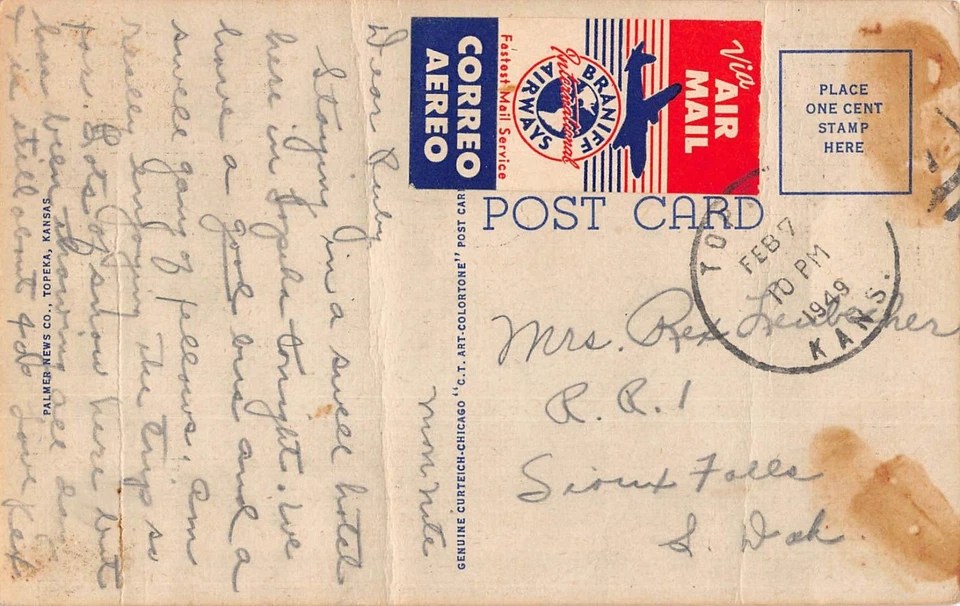 Mon. Nite
Dear Ruby
Staying in a swell hotel
here in Topeka tonight. We
have a good bus and a
swell gang of fellows. Am
really enjoying the trip so
far. Lots of snow here but
has been thawing all day
+ is still about 40. Love Rex
PALMER NEWS CO., TOPEKA, KANSAS.
GENUINE CURTEICH-CHICAGO "C.T. ART-COLORTONE" POST CAR
CORREO
AEREO
Fastest Mail Service
BRANIFF
International
AIRWAYS
Via
AIR
MAIL
PLACE
ONE CENT
STAMP
HERE
POST CARD
TOP
FEB 7
10 PM
1949
KANS.
Mrs. Rex
R. R. 1
Sioux Falls
S. Dak.